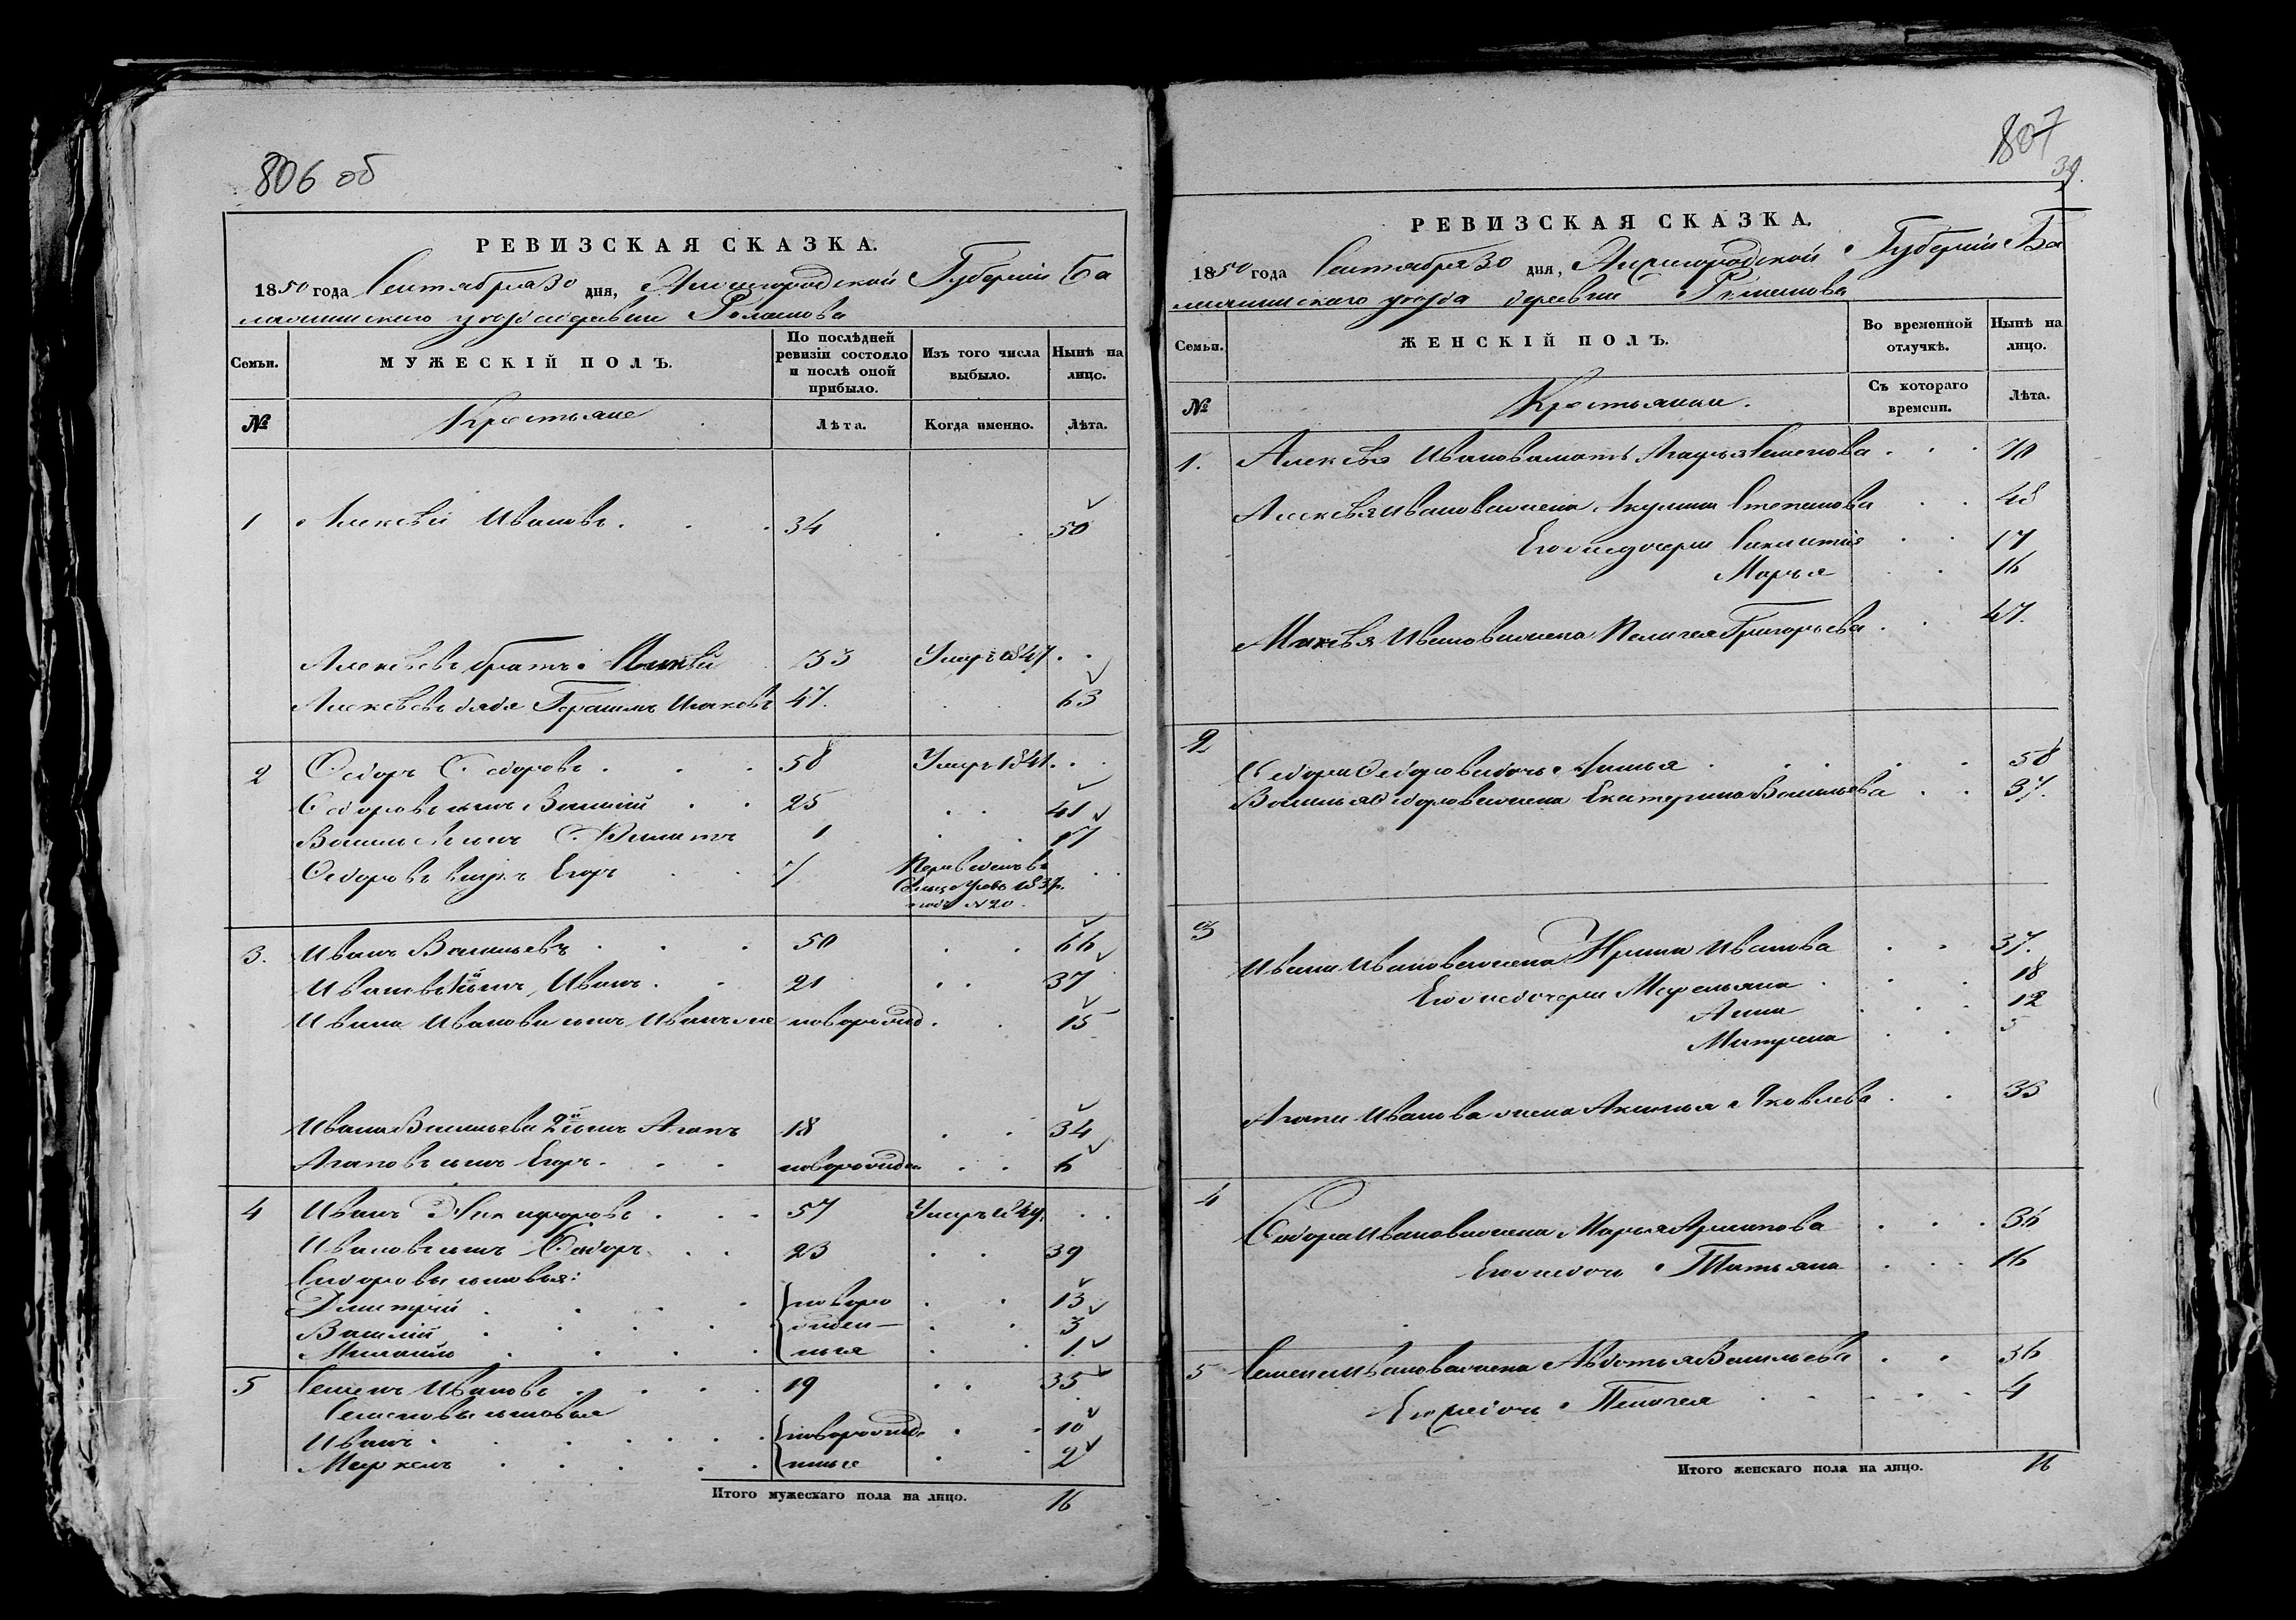 806 об
РЕВИЗСКАЯ СКАЗКА.
1850 года Сентября 30 дня, Нижегородской Губерніи Ба
лахнинскаго уѣзда деревни Романова
Семьи.
МУЖЕСКІЙ ПОЛЪ.
По послѣдней ревизіи состояло и послѣ оной прибыло.
Изъ того числа выбыло.
Нынѣ на лицо.
№
Крестьяне
Лѣта.
Когда именно.
Лѣта.
1 Алексѣй Ивановъ. 34 50
Алексѣевъ братъ 33 Умеръ 1847
Алексѣевъ дядя Герасимъ 47. 63
2 Ѳедоръ Ѳедоровъ 58 Умеръ 1841.
Ѳедоровъ сынъ Василій 25 41
Васильевъ сынъ Филипъ 1 17
Ѳедоровъ внукъ Егоръ 7 Переведенъ въ
1837.
подъ №20.
3. Иванъ Васильевъ 50 66
Ивановъ 1й сынъ, Иванъ. 21 37
Ивана Иванова сынъ Иванъ же новорожд. 15
Ивана Васильева 2й сынъ Агапъ 18 34
Агаповъ сынъ Егоръ. новорожден. 6
4 Иванъ Никифоровъ 57 Умеръ 1849.
Ивановъ сынъ Сидоръ 23 39
Сидоровы сыновья:
Дмитрій новоро 13
Василій жден- 3
Михайло ные 1.
5 Семенъ Ивановъ 19 35
Семеновы сыновья
Иванъ новорожде 10
Маркелъ нные 2
Итого мужескаго пола на лицо. 16
807
39.
РЕВИЗСКАЯ СКАЗКА.
1850 года Сентября 30 дня, Нижегородской Губерніи Ба
лахнинскаго уѣзда деревни Романова
Семьи.
ЖЕНСКІЙ ПОЛЪ.
Во временной отлучкѣ.
Нынѣ на лицо.
№
Крестьянки.
Съ котораго времени.
Лѣта.
1. Алексѣя Иванова мать Семенова 70
Алексѣя Иванова жена Акулина Степанова 48
Его же дочери 17
Марья 16
Иванова жена Пелагея Григорьева 47.
2
Ѳедора Ѳедорова дочь 58
Василья Ѳедорова жена Екатерина Васильева 37.
3
Ивана Иванова жена Ирина Иванова 37.
Его же дочери Мефельяна 18
Анна 12
Матрена 5
Агапа Иванова жена Аксинья Яковлева 35
4
Сидора Иванова жена Марья Архипова 36
Его же дочь Татьяна 16
5 Семена Иванова жена Авдотья Васильева 36
Его же дочь Пелагея 4
Итого женскаго пола на лицо. 16